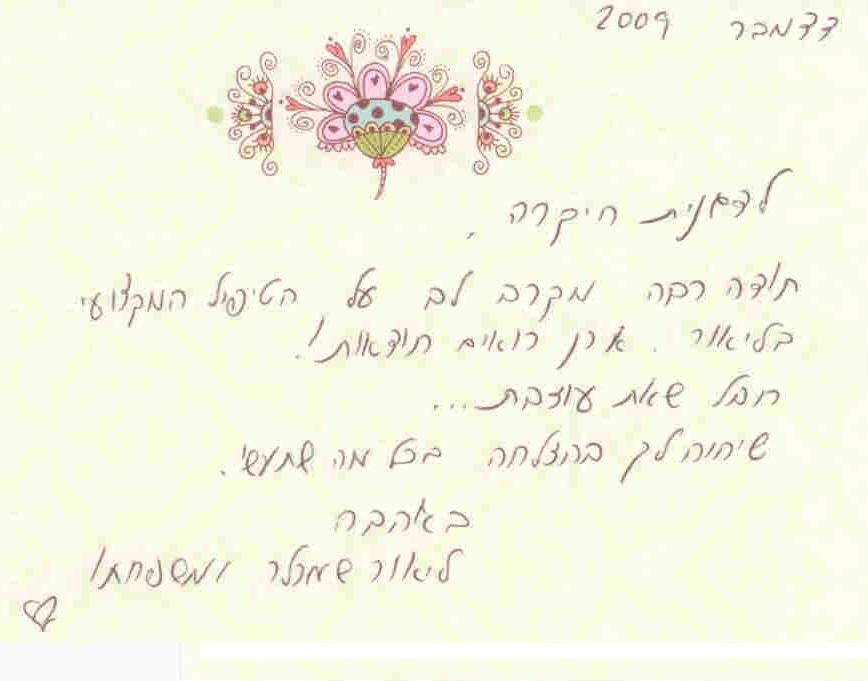 דצמבר 2009
לדגנית היקרה,
תודה רבה מקרב לב על הטיפול המקצועי
בליאור. אכן רואים תוצאות!
חבל שאת עוזבת...
שיהיה לך בהצלחה בכל מה שתעשי.
באהבה
ליאור ומשפחתו